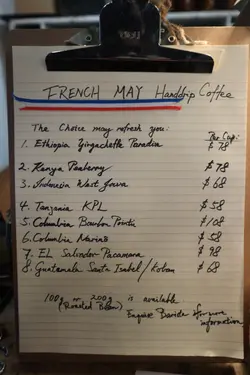 FRENCH MAY Handdrip Coffee
The Choice may refresh you:
Per Cup:
1. Ethiopia Yirgacheffe Paradise $78
2. Kenya Peaberry $78
3. Indonesia West Java $68
4. Tanzania KPL $58
5. Columbia Bourbon Pointu $108
6. Columbia $58
7. EL Salvador Pacamara $98
8. Guatemala Santa Isabel / $68
100g or 200g is available.
(Roasted Bean) Enquire Barista for more
information